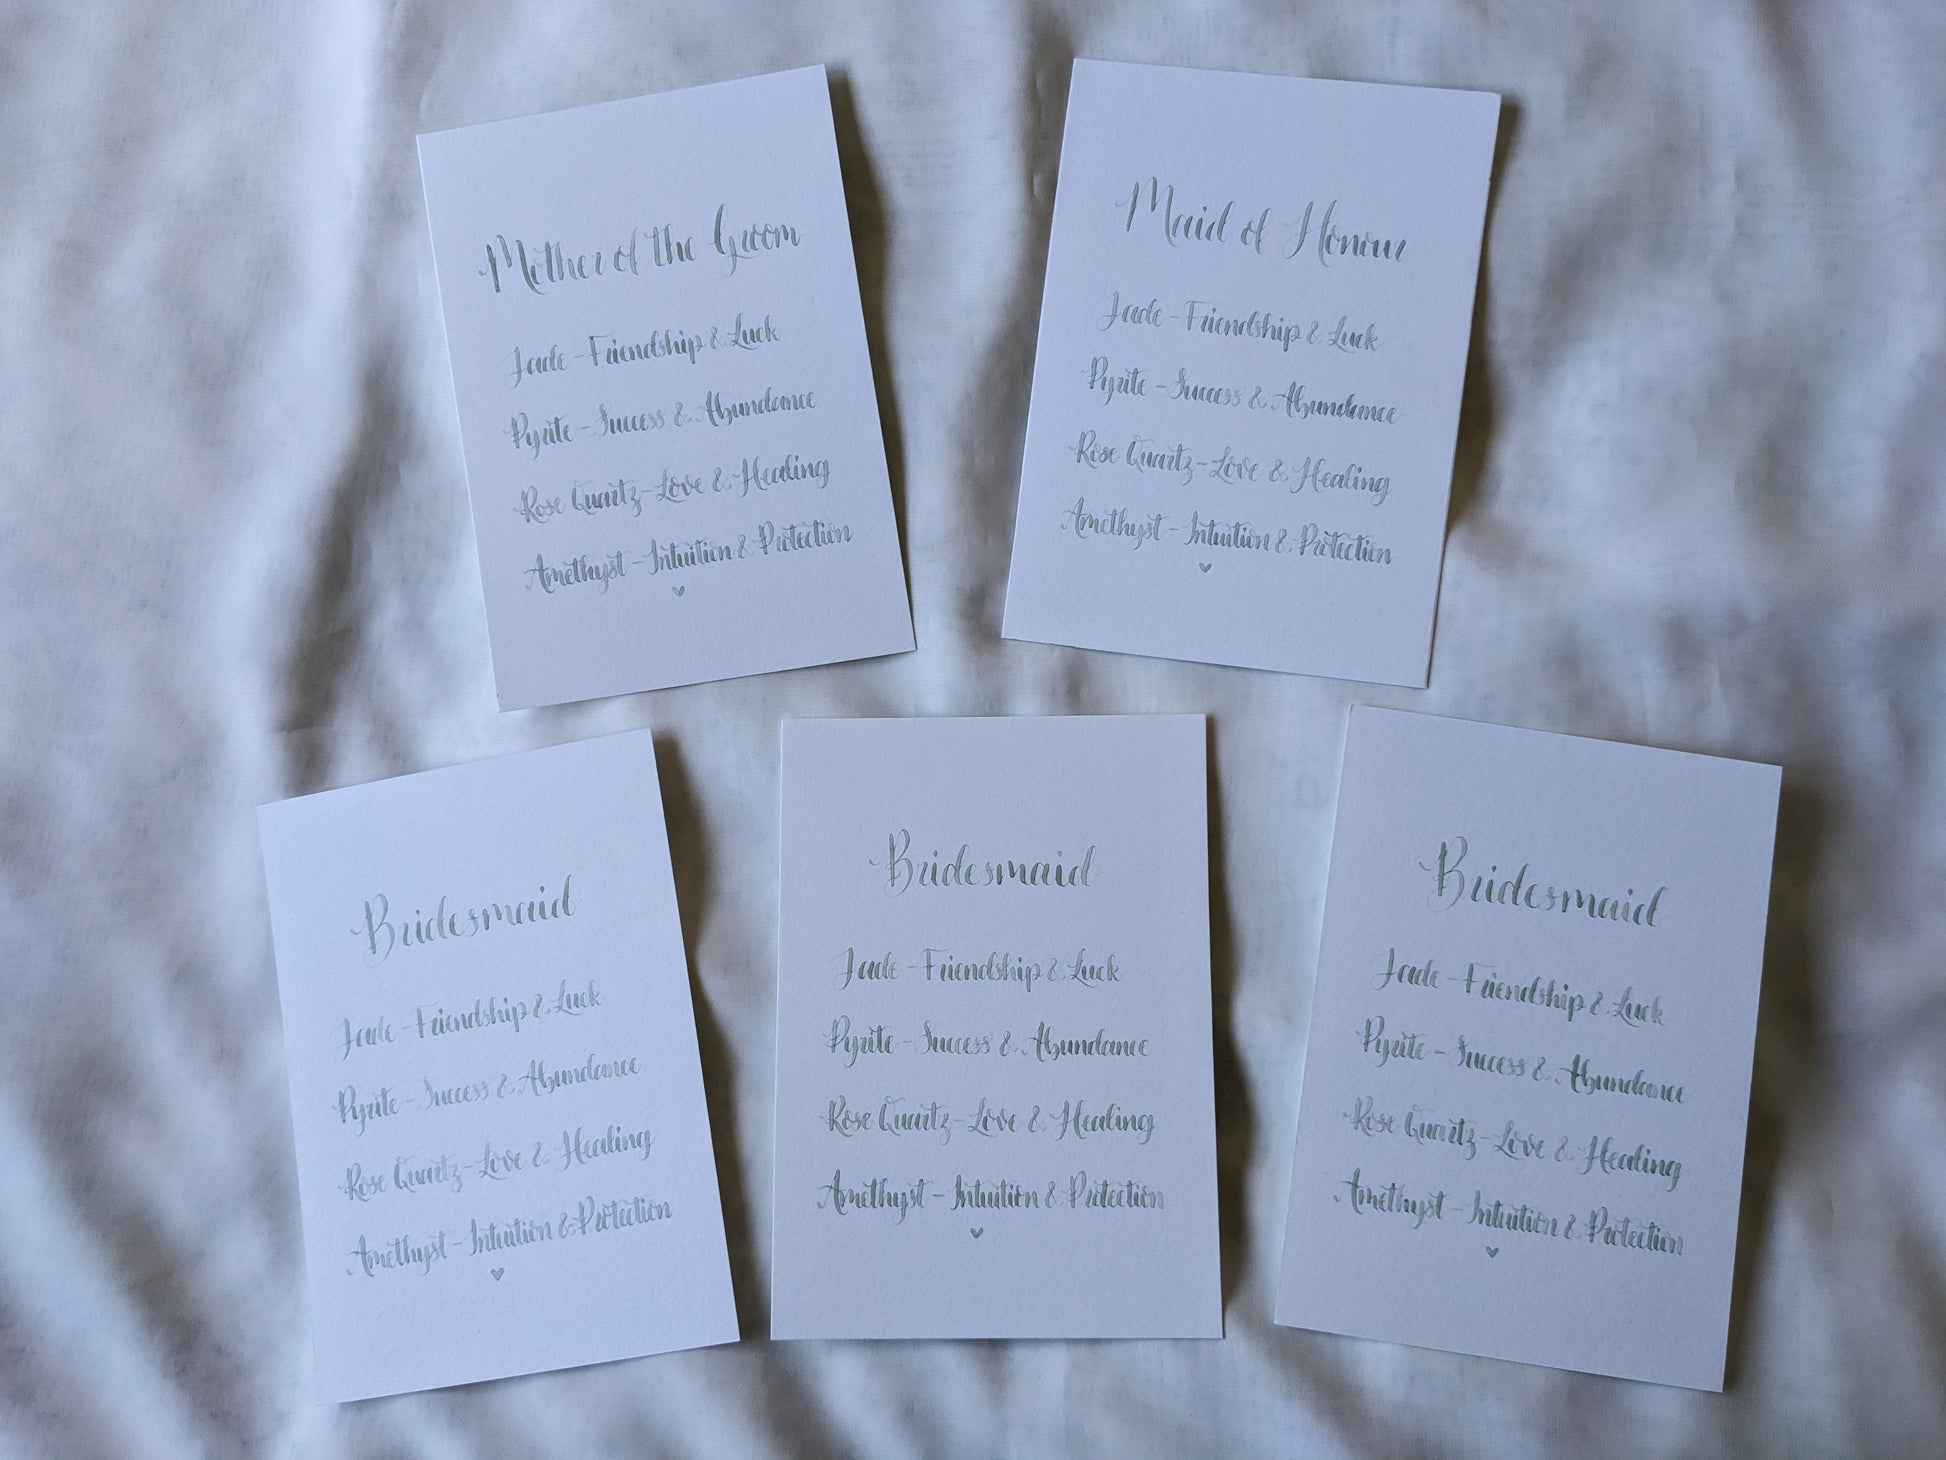 Mother of the Groom
Jade - Friendship & Luck
Pyrite - Success & Abundance
Rose Quartz - Love & Healing
Amethyst - Intuition & Protection
Maid of Honour
Jade - Friendship & Luck
Pyrite - Success & Abundance
Rose Quartz - Love & Healing
Amethyst - Intuition & Protection
Bridesmaid
Jade - Friendship & Luck
Pyrite - Success & Abundance
Rose Quartz - Love & Healing
Amethyst - Intuition & Protection
Bridesmaid
Jade - Friendship & Luck
Pyrite - Success & Abundance
Rose Quartz - Love & Healing
Amethyst - Intuition & Protection
Bridesmaid
Jade - Friendship & Luck
Pyrite - Success & Abundance
Rose Quartz - Love & Healing
Amethyst - Intuition & Protection